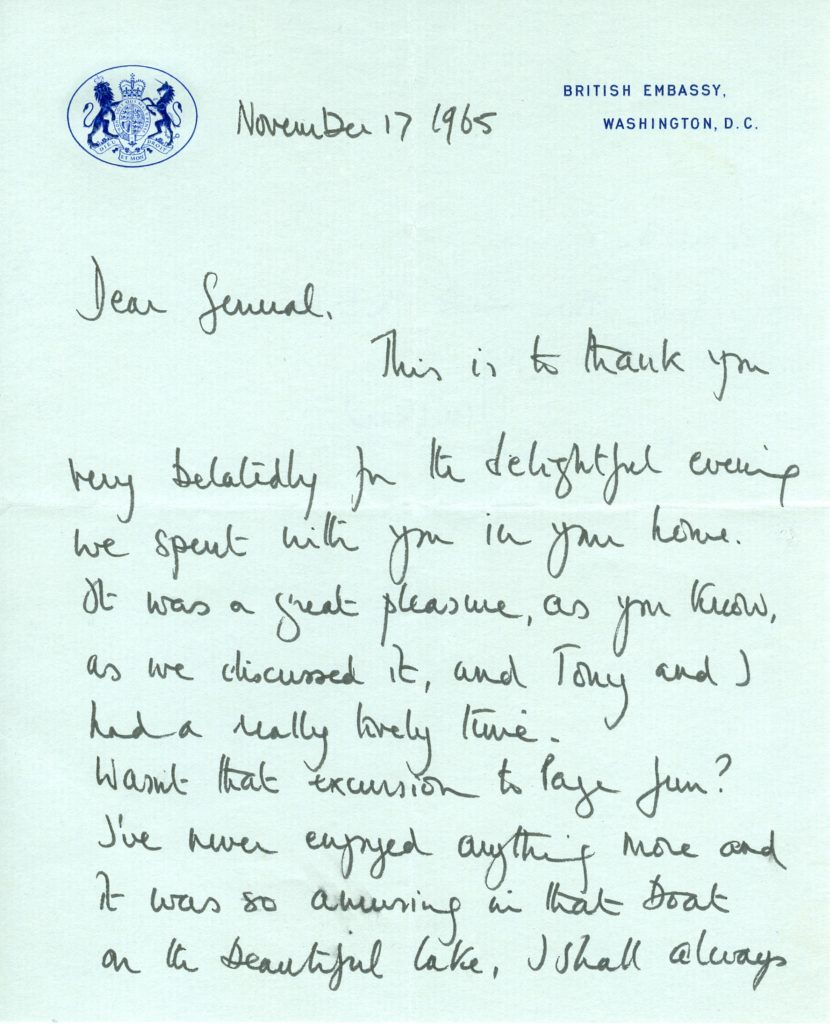 November 17 1965
BRITISH EMBASSY,
WASHINGTON, D.C.
DIEU
ET MON
DROIT
Dear General,
This is to thank you
very belatedly for the delightful evening
we spent with you in your home.
It was a great pleasure, as you know,
as we discussed it, and Tony and I
had a really lovely time.
Wasn't that excursion to Page fun?
I've never enjoyed anything more and
it was so amusing in that boat
on the beautiful lake, I shall always